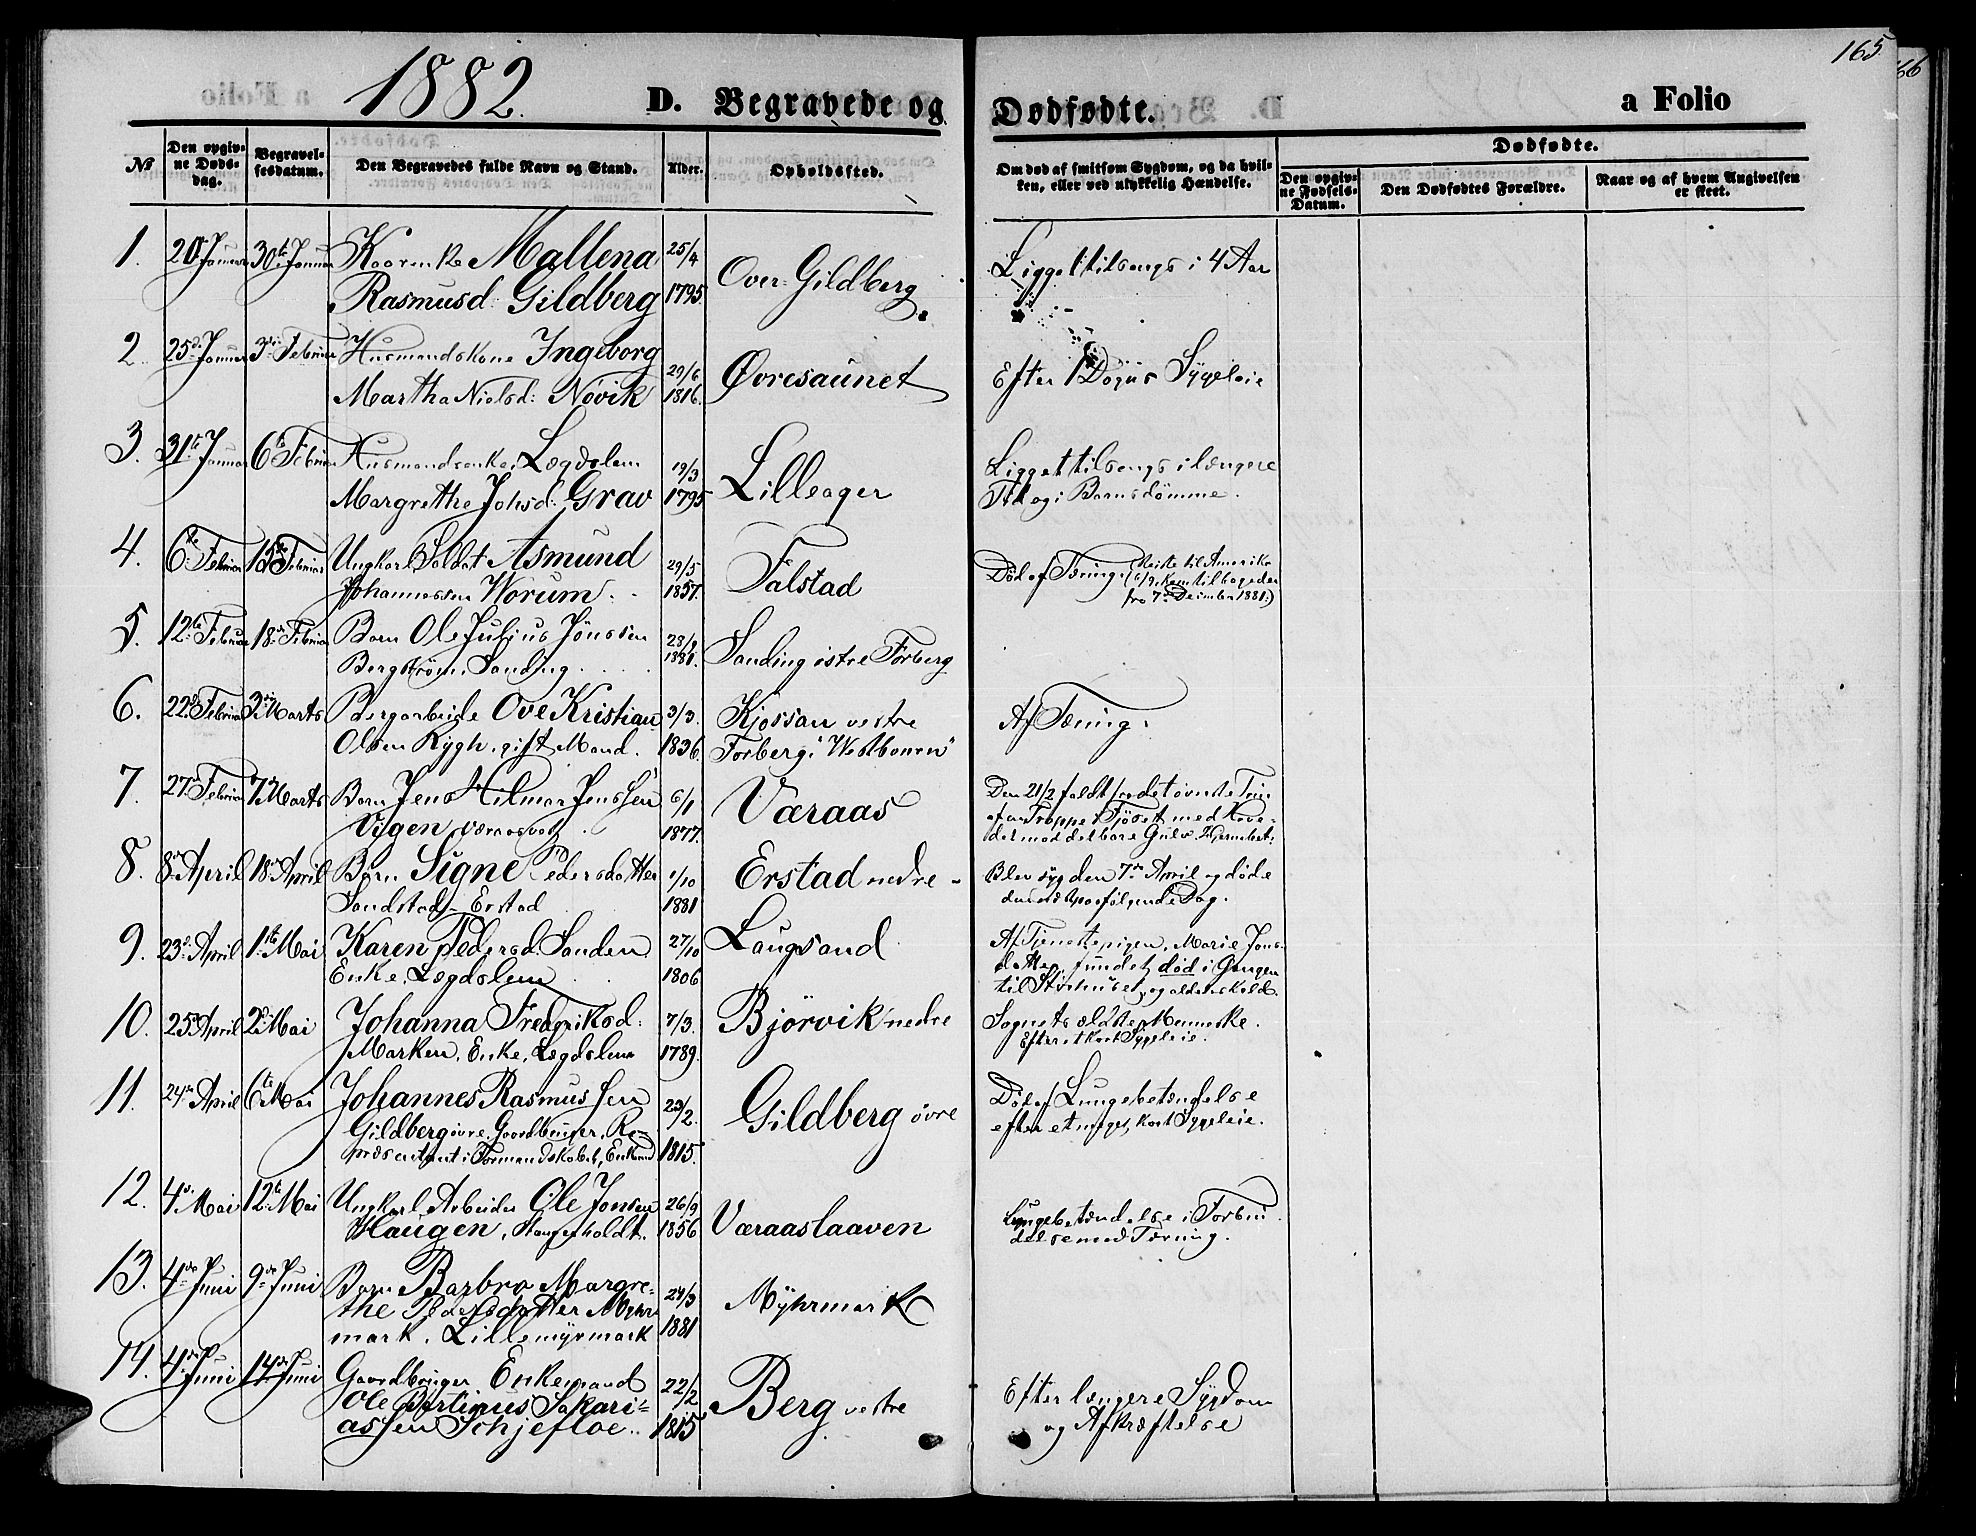 165
66
1882.
D. Begravede og Dødfødte.
a Folio
No
Den opgivne Døds-dag.
Begravelsesdatum.
Den Begravedes fulde Navn og Stand.
Alder.
Opholdssted.
Om død af smitsom Sygdom, og da hvilken, eller ved ulykkelig Hændelse.
Dødfødte.
Den opgivne Fødsels-Datum.
Den Dødfødtes Forældre.
Naar og af hvem Angivelsen er skeet.
1. 20 Januar 30te Januar Kaarenke Mallena 25/4 Over Gildberg Ligget tilsengs i 4 Aar
Rasmusd. Gildberg 1795
2. 25de Januar 3die Februar Husmandskone Ingeborg 29/6 Øvresaunet Efter 1 Døgns Sygeleie
Martha Nielsd: Növik 1816.
3. 31te Januar 6te Februar Husmandsenke, Lægdslem 19/3 Lilleager Ligget tilsengs i længere
Margrethe Johsd: Grav 1795 Tid og i Barnsdömme.
4. 6te Februar 15de Februar Ungkarl Soldat Asmund 29/5 Falstad Död af Tæring. (Reiste til Amerika
Johannessen Worum 1857. 6/9. Kom tilbage der
fra 7de December 1881.)
5. 12te Februar 18de Februar Barn Ole Julius Jönssen 1881. Sanding östre Forberg
Bergström, Sanding
6. 22de Februar 3die Marts Bergarbeide Ove Kristian 3/3. Kjössan vestre Af Tæring.
Olsen Rygh. gift Mand. 1836. Forberg "Westbonen"
7. 27de Februar 7de Marts Barn Jens Hilmar Jenssen 6/1 Væraas Den 21/2 faldt fra det överste Trin
Vigen Væraasvald 1877. af en Trappe i Fjöset med Hove-
det mod det bare Gulv.
8. 8de April 18de April Barn Signe Pedersdatter 1/10 Erstad nedre Blev syg den 7de April og döde
Sandstad - Erstad 1881 den paafølgende Dag.
9. 23de April 1ste Mai Karen Pedersd. Sanden 27/10 Laugsand Af Tjenestepigen, Marie Jons-
Enke, Lægdslem 1806 datter, fundet död i Gangen
til Stuehuset, og alderskold.
10. 25de April 2den Mai Johanna Fredriksd: 7/3. Björvik nedre Sognets ældste Menneske.
Marken, Enke, Lægdslem 1789. Efter et kort Sygeleie.
11. 24de April 6te Mai Johannes Rasmussen 23/2. Gildberg övre Död af Lungebetændelse
Gildberg övre. Gaardbruger, Re- efter et meget kort Sygeleie.
præsentant i Formandskabet, Enkemand 1815.
12. 4de Mai 12te Mai Ungkarl Arbeider Ole Jonsen 26/9 Væraaslaaven Lungebetændelse i Forbin
Haugen, Haugenholdt. 1856 delse med Tæring.
13. 4de Juni 9de Juni Barn Barbro Margre- 24/3 Myhrmark
the Bardsdatter Myhr-
mark. Lillemyrmark 1881
14. 4de Juni 14de Juni Gaardbruger Enkemand 22/2 Berg vestre Efter længere Sygdom
Ole Bertinus Sakari= og Afkræftelse
assen Schjefloe. 1815